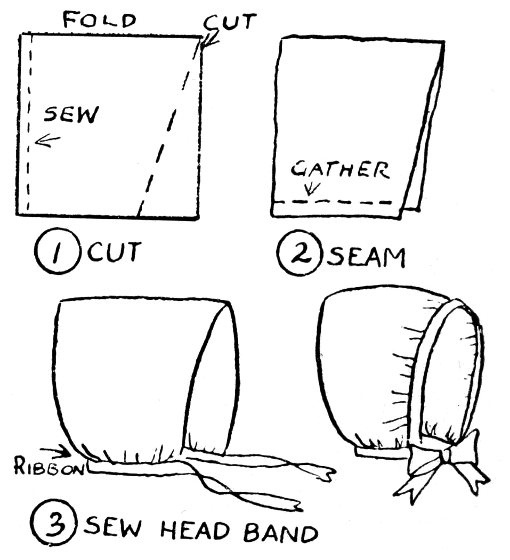 FOLD
CUT
SEW
1 CUT
GATHER
2 SEAM
RIBBON
3 SEW HEAD BAND